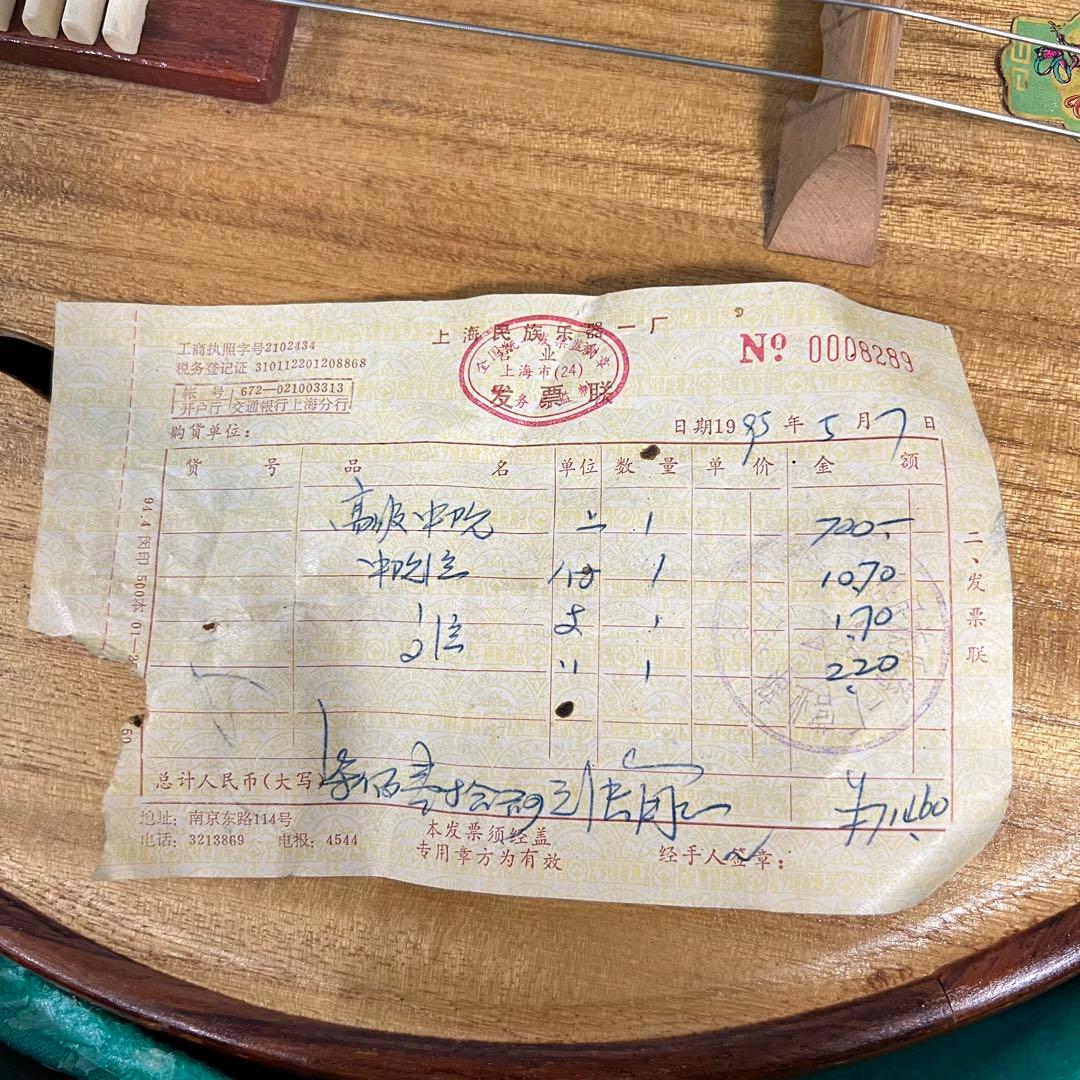 上海民族乐器一厂
营业
上海市(24)
发票联
No 0008289
工商执照字号2102434
税务登记证 310112201208868
帐号 672—021003313
开户行 交通银行上海分行
日期1995年5月7日
购货单位：
货号 品名 单位 数量 单价 金额
高级中阮 1 700.—
中阮弦 付 1 10.70
1 1.70
2弦 〃 1 2.20
总计人民币(大写) 柒佰壹拾肆元陆角正 ¥714.60
地址：南京东路114号
电话：3213869 电报：4544
本发票须经盖
专用章方为有效
经手人签章：
二、发票联